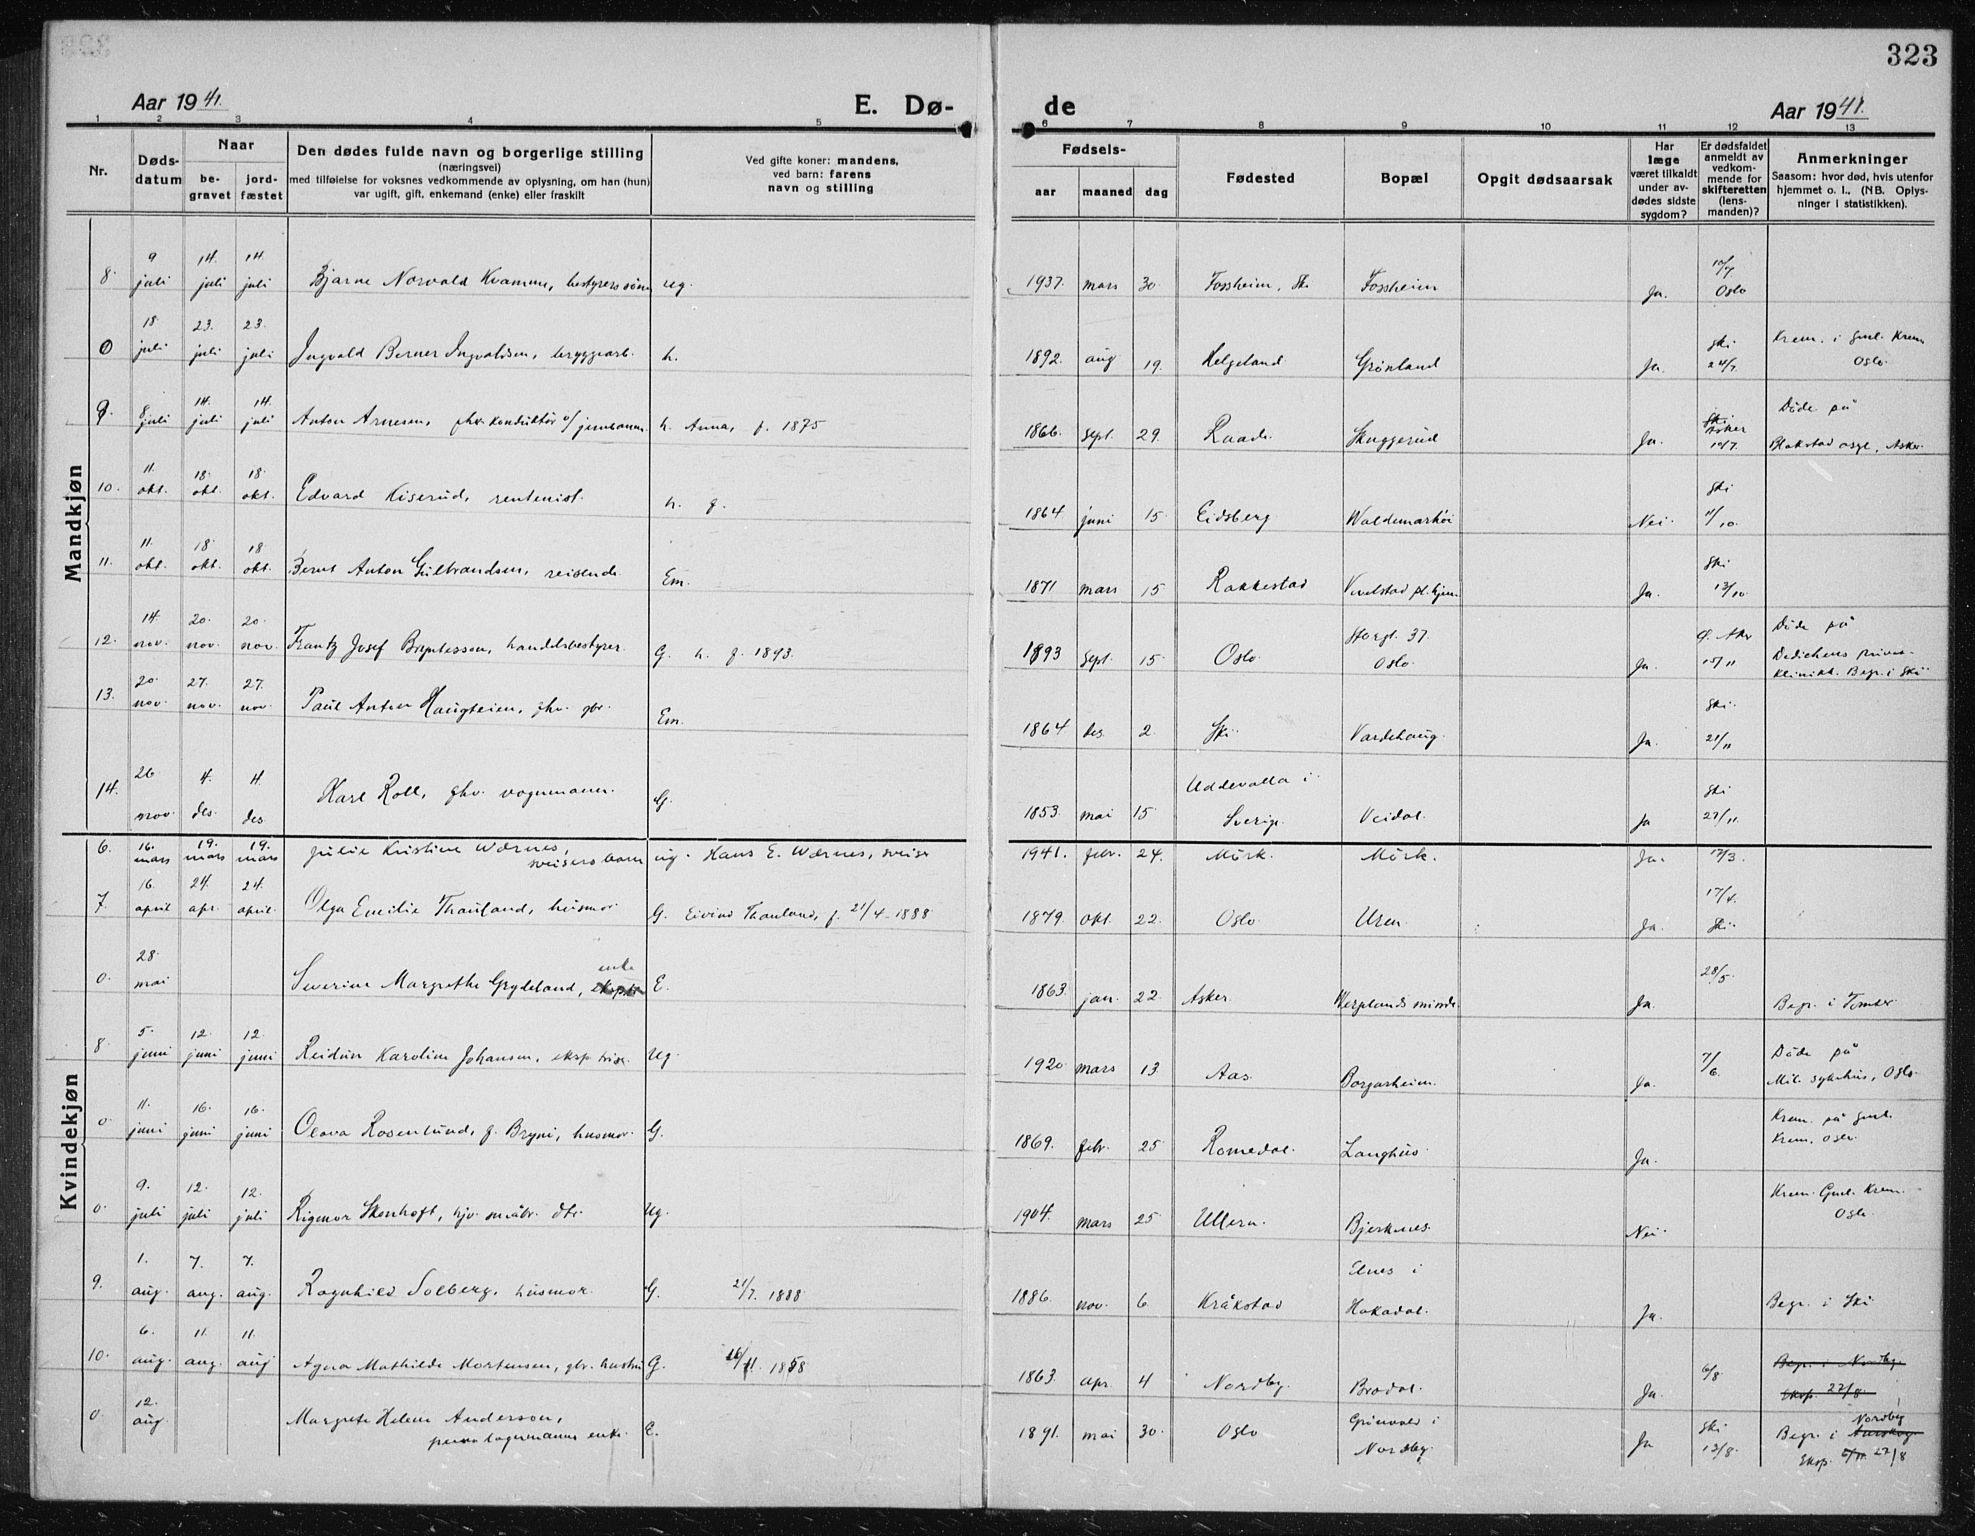 323
Aar 1941.
E. Dø-
de
Aar 1941.
1 2 3 4 5 6 7 8 9 10 11 12 13
Nr.
Døds-
datum
Naar
be-
gravet
jord-
fæstet
Den dødes fulde navn og borgerlige stilling
(næringsvei)
med tilføielse for voksnes vedkommende av oplysning, om han (hun)
var ugift, gift, enkemand (enke) eller fraskilt
Ved gifte koner: mandens,
ved barn: farens
navn og stilling
Fødsels-
aar maaned dag
Fødested
Bopæl
Opgit dødsaarsak
Har
læge
været tilkaldt
under av-
dødes sidste
sygdom?
Er dødsfaldet
anmeldt av
vedkom-
mende for
skifteretten
(lens-
manden)?
Anmerkninger
Saasom: hvor død, hvis utenfor
hjemmet o. l., (NB. Oplys-
ninger i statistikken).
Mandkjøn
8. 9 juli 14. juli 14. juli Bjarne Norvald Kvamme, bestyrers sønn ug. 1937. mars 30. Fossheim, Ski Fossheim Ja. 10/7 Oslo
0 18 juli 23. juli 23. juli Ingvald Berner Ingvaldsen, bryggearb. h. 1892. aug 19. Helgeland Grönland Ja. Ski 24/7. Krem. i Gml. Krem Oslo.
9. 8. juli 14. juli 14. juli Anton Arnesen, fhv. konduktör v/ jernbanen h. Anna, f. 1875 1866. sept. 29. Raade Skuggerud Ja. Ski Asker 10/7. Döde på Blakstad asyl, Asker
10. 11. okt. 18. okt. 18. okt. Edvard Kiserud, rentenist. h. g. 1864. juni 15. Eidsberg Waldemarhöi Nei. Ski 11/10.
11. 11. okt. 18 okt. 18 okt. Bernt Anton Gulbrandsen, reisende Em. 1871 mars 15 Rakkestad Vevelstad pl. hjem Ja. Ski 13/10.
12. 14. nov. 20. nov. 20. nov. Frantz Josef Bryntesson, handelsbestyrer G. h. f. 1893. 1893 sept. 15. Oslo. Storgt. 37. Oslo. Ja. Ø. Aker 15/11 Döde på Dedichens privat- klinikk. Begr. i Ski
13. 20. nov. 27. nov. 27. nov. Paul Anton Haugteien, fhv. gbr. Em. 1864 des. 2. Ski Vardehaug. Ja. Ski. 21/11
14. 26 nov. 4. des. 4. des. Karl Roll, fhv. vognmann. G. 1853. mai 15 Uddevalla i Sverige. Veidal. Ja Ski 27/11.
Kvindekjøn
6. 16. mars 19. mars 19. mars Julie Kristine Wærnes, sveisers barn ug. Hans E. Wærnes, sveiser 1941. febr. 24. Mörk. Mörk. Ja. 17/3.
7. 16. april 24. apr. 24. april. Olga Emilie Thauland, husmor G. Eivind Thauland, f. 21/4-1888 1879. okt. 22. Oslo Uren Ja. 17/4. Ski.
0. 28. mai Severine Margrethe Grydeland, enke E. 1863. jan. 22. Asker. Werplands minde. Ja. 28/5 Begr. i Tomter
8 5. juni 12. juni 12. juni Reidun Karoline Johansen, eksp.trise. Ug. 1920. mars 13. Aas. Borgarheim. Ja. 7/6. Döde på Mil. sykehus, Oslo.
0 11. juni 16. juni 16. juni Olava Rosenlund, f. Bryni, husmor. G. 1869. febr. 25 Romedal. Langhus. Ja. Krem. på Gml. Krem. Oslo
0. 9. juli 12. juli 12. juli Rigmor Skenhoft, hjv. småbr. dtr. Ug. 1904. mars 25 Ullern. Bjerknes. Nei. Krem. Gml. Krem. Oslo.
9. 1. aug. 7. aug. 7. aug. Ragnhild Solberg, husmor. G. 21/7. 1888 1886. nov. 6 Kråkstad Elnes i Hakadal. Ja. Begr. i Ski
10. 6. aug. 11. aug. 11. aug Agna Mathilde Mortensen, gbr. hustru G. 16/11. 1858 1863. apr. 4 Nordby. Brodal. Ja. 6/8 Begr. i Nordby. Eksp. 22/8.
0. 12. aug. Margrete Helene Anderson, lagermanns enke. E. 1891. mai 30. Oslo Grönvold i Nordby Ja Ski 13/8. Begr. i Aurskog. Nordby Eksp. 27/8